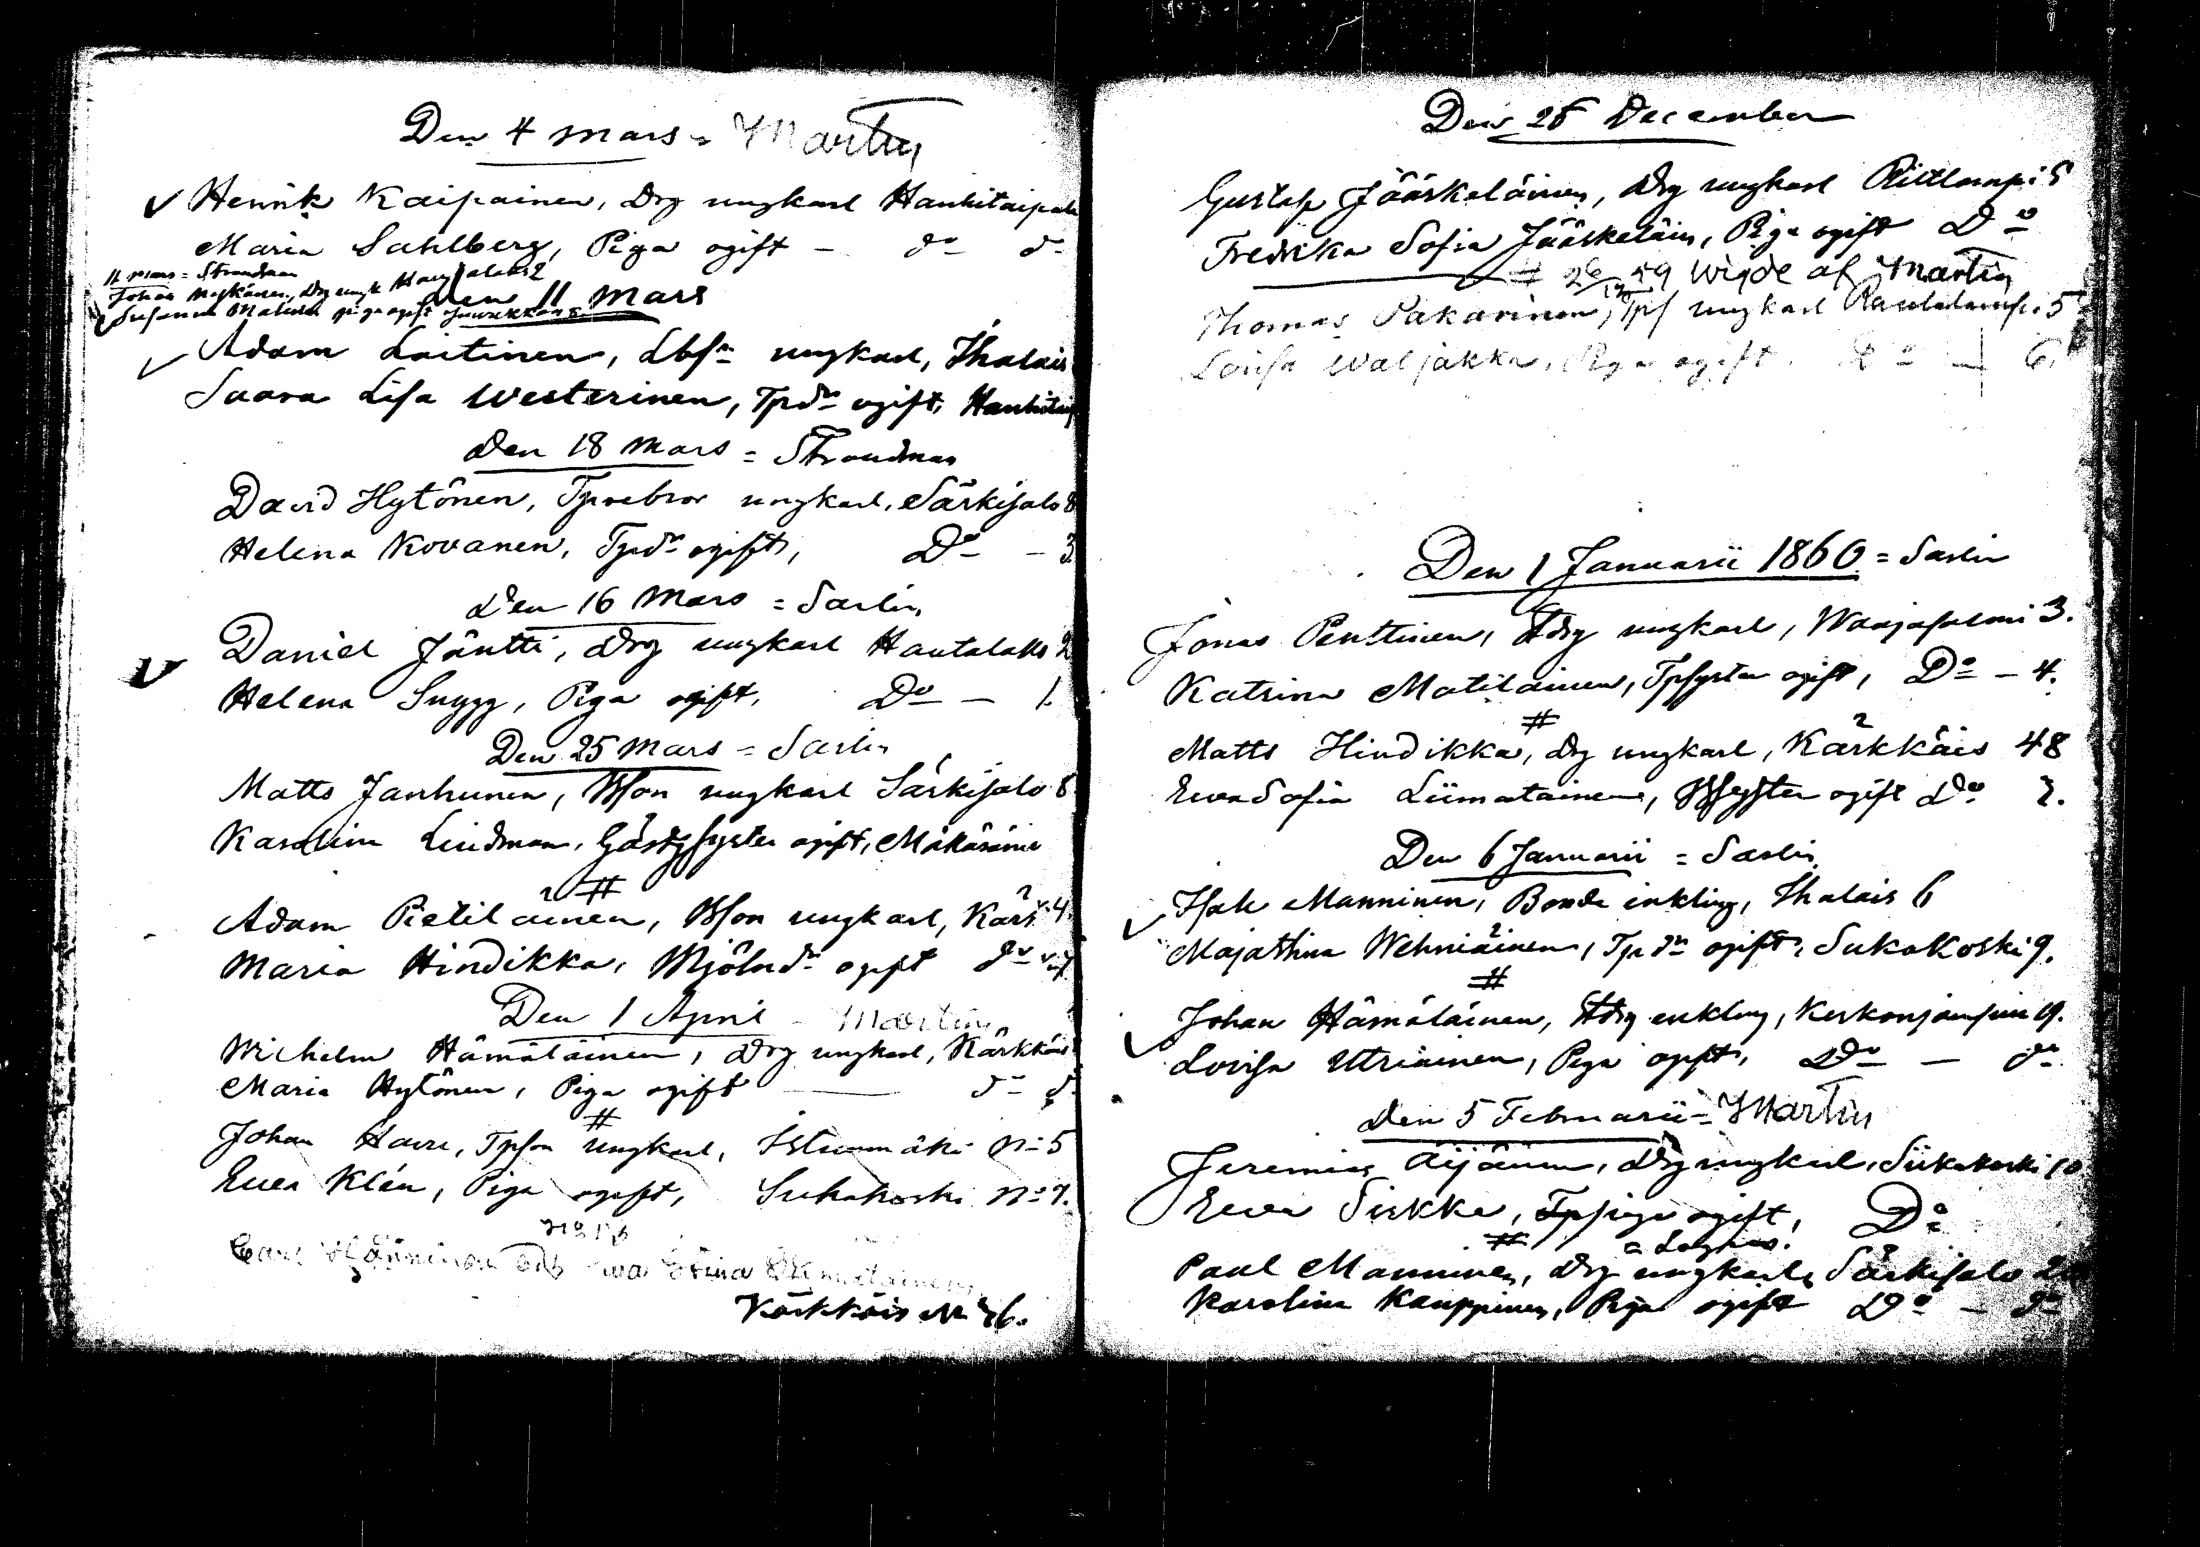 Den 4 mars = Martin
Henrik Kaipainen, Drg ungkarl Hankitaipale
Maria Sahlberg, Piga ogift - do do
11 mars = Strandman
Johan Drg ungk Hautalaks 2
Susanna piga ogift
Den 11 Mars
Adam Laitinen, Lbsn ungkarl, Ihalais
Saara Lisa Westerinen, Tpdr ogift, Hankitaip
Den 18 Mars = Strandman
David Hytönen, Tprebror ungkarl, Särkisalo 8
Helena Kovanen, Tpdr ogift, Do - 3
Den 16 Mars = Sarlin
Daniel Jäntti, Drg ungkarl Hautalaks 2
Helena Snygg, Piga ogift, Do - 1.
Den 25 Mars = Sarlin
Matts Janhunen, Bson ungkarl Särkisalo 8
Karolina Lindman, Gästgfsyster ogift,
#
Adam Pietiläinen, Bson ungkarl, Kärk 4
Maria Hindikka, Mjölndr ogift do
Den 1 April - Martin
Wilhelm Hämäläinen, Drg ungkarl, Kärkkäis
Maria Hytönen, Piga ogift — do do
#
Johan Havu, Tpson ungkarl, Istunmäki No 5
Eva Klén, Piga ogift, Sukakoski No 7.
Carl Hänninen och Eva Stina Liimatainen
Kärkkäis No 46.
Den 26 December
Gustaf Jääskeläinen, Drg ungkarl Riitlampi 5
Fredrika Sofia Jääskeläin, Piga ogift Do
# 26/12 59 Wigde af Martin
Thomas Pakarinen, Tps ungkarl Rautalampi. 5
Lovisa Waljakka, Piga ogift. Do — 6.
Den 1 Januarii 1860 = Sarlin
Jonas Penttinen, Adrg ungkarl, Waajasalmi 3.
Katrina Matilainen, Tpsyster ogift, Do - 4.
#
Matts Hindikka, Drg ungkarl, Kärkkäis 48
Eva Sofia Liimatainen, Bsyster ogift Do 2.
Den 6 Januarii = Sarlin
Isak Manninen, Bonde enkling, Ihalais 6
Maja Stina Wehniäinen, Tpdr ogift, Sukakoski 9.
#
Johan Hämäläinen, Adrg enkling, Kerkonjoensuu 19.
Lovisa Utriainen, Piga ogift, Do — do
Den 5 Februarii = Martin
Jeremias Äijänen, Drg ungkarl, Siikakoski 10
Eva Sirkka, Tppiga ogift, Do
#
Paul Manninen, Drg ungkarl, Särkisalo 2
Karolina Kauppinen, Piga ogift Do - do